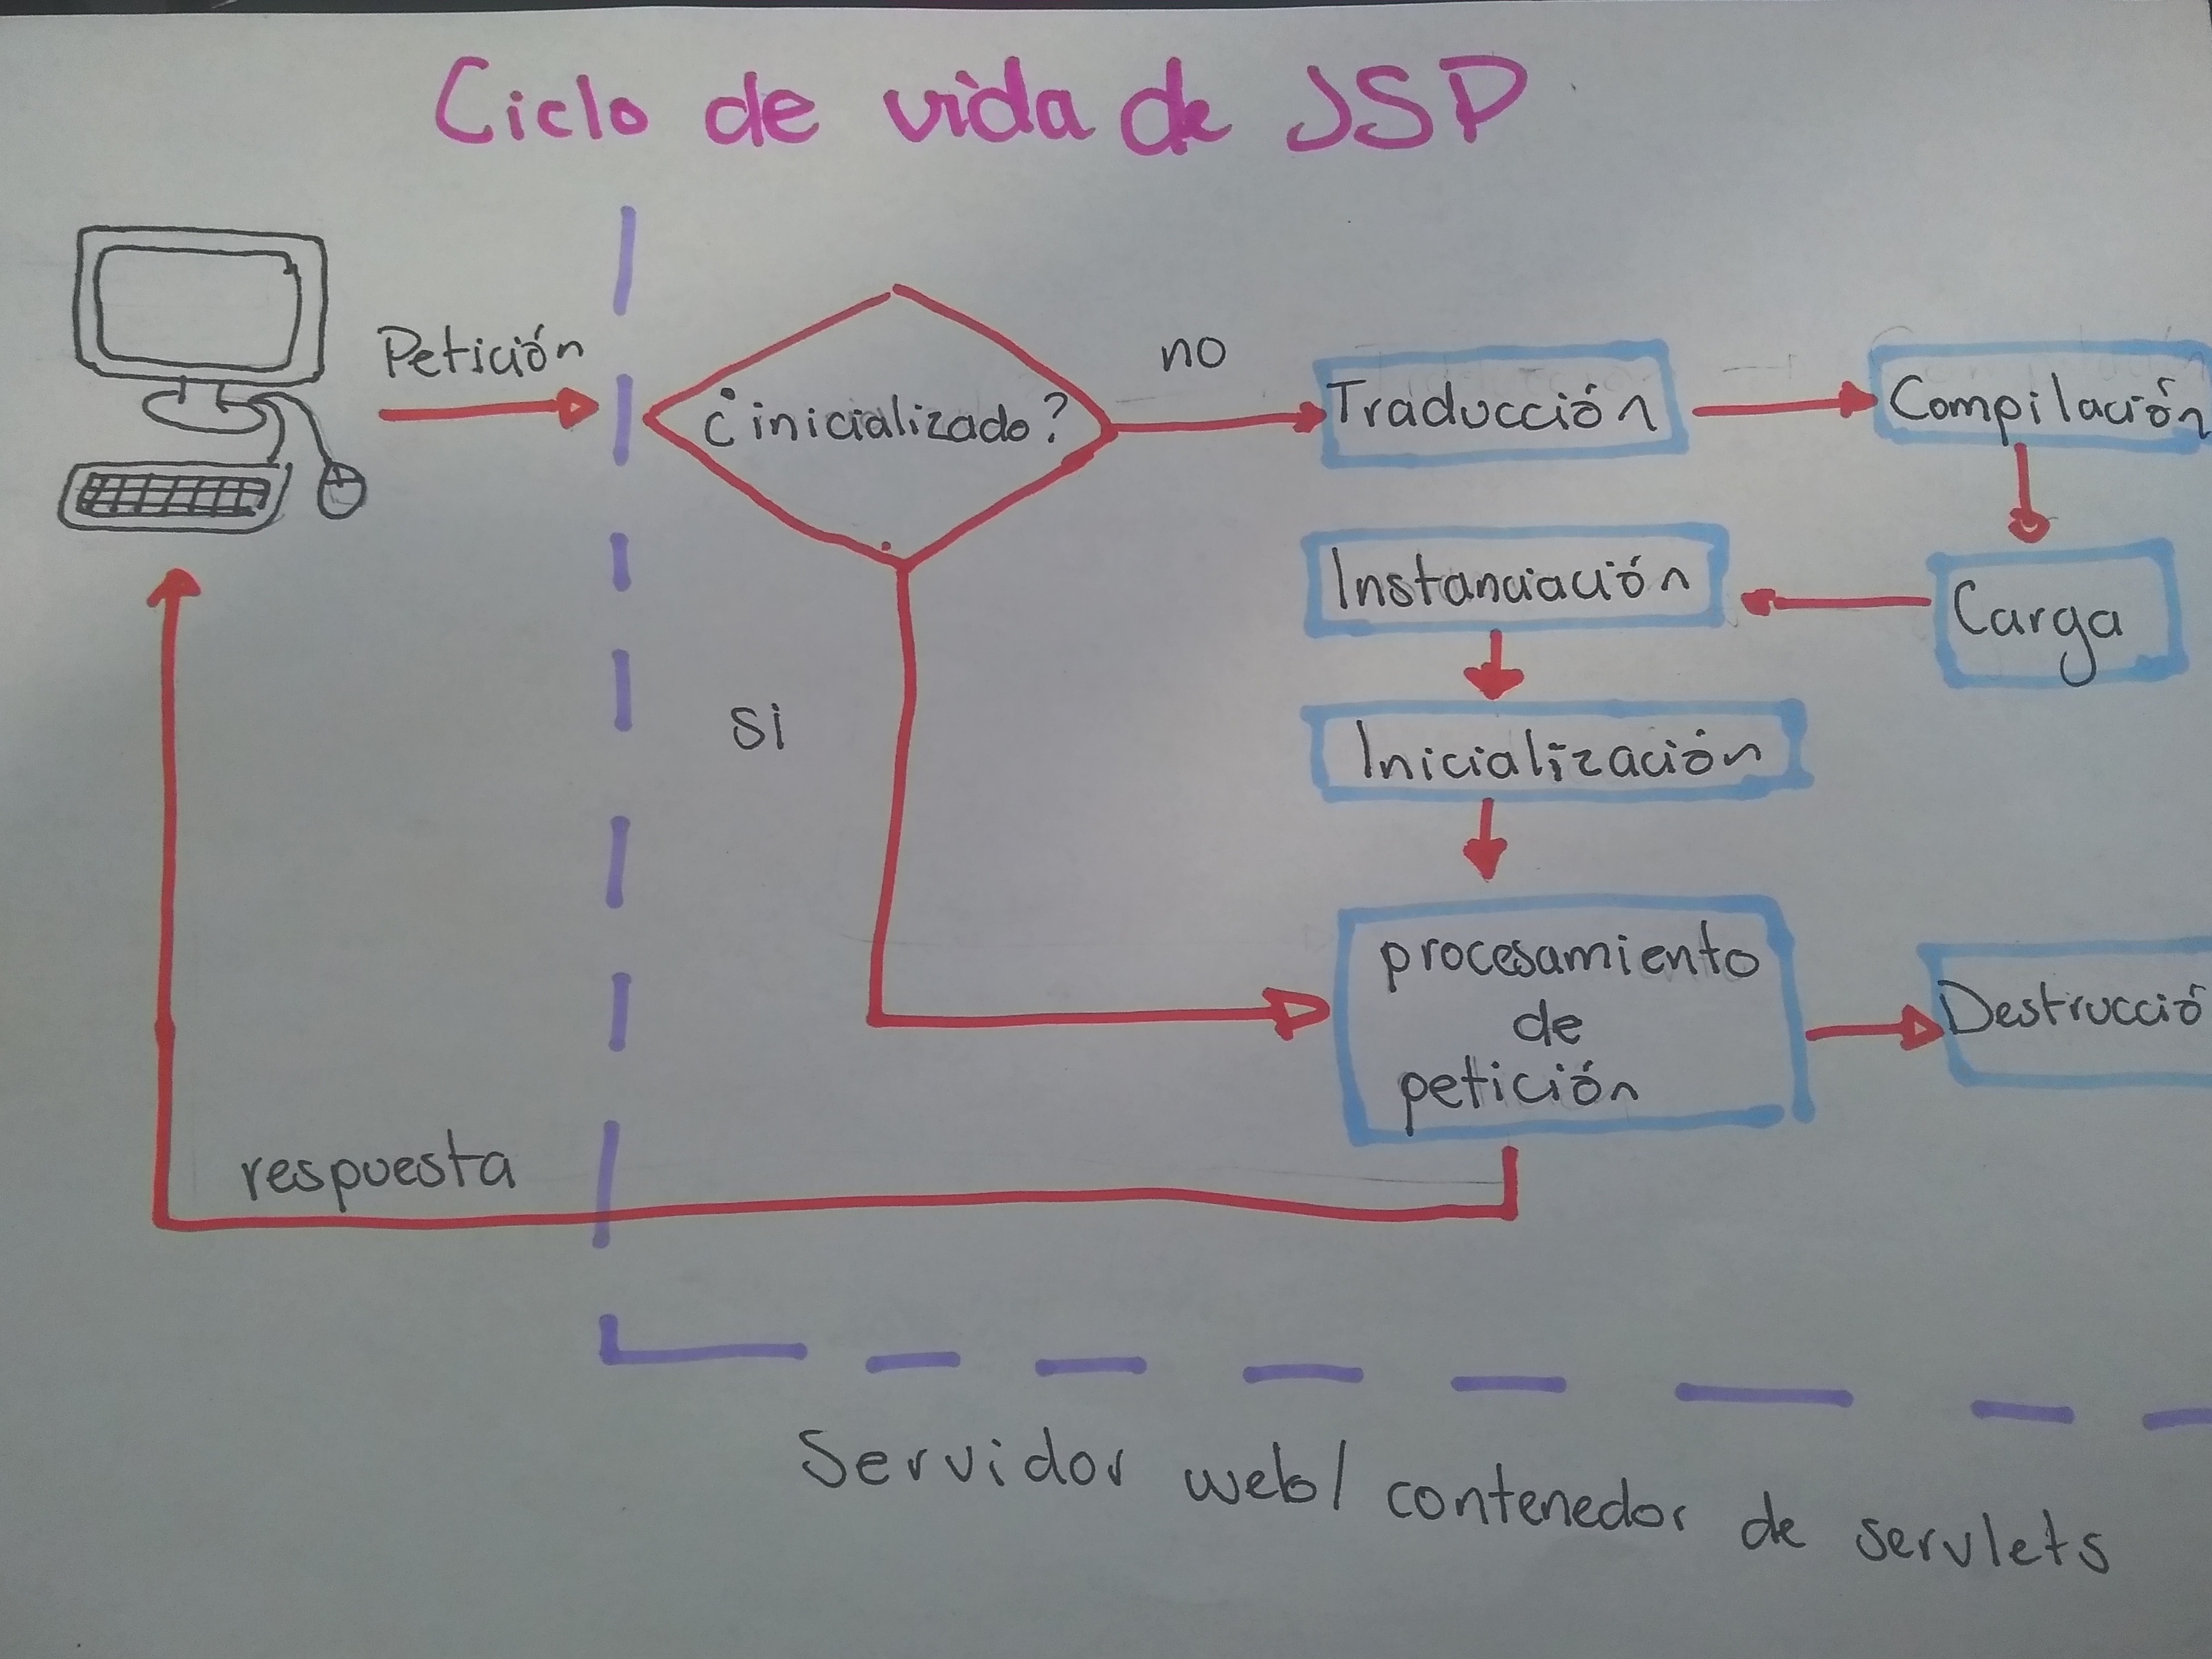 Ciclo de vida de JSP
Petición
¿inicializado?
no
Traducción
Compilación
Instanciación
Carga
si
Inicialización
procesamiento
de
petición
Destrucció
respuesta
Servidor web/ contenedor de servlets